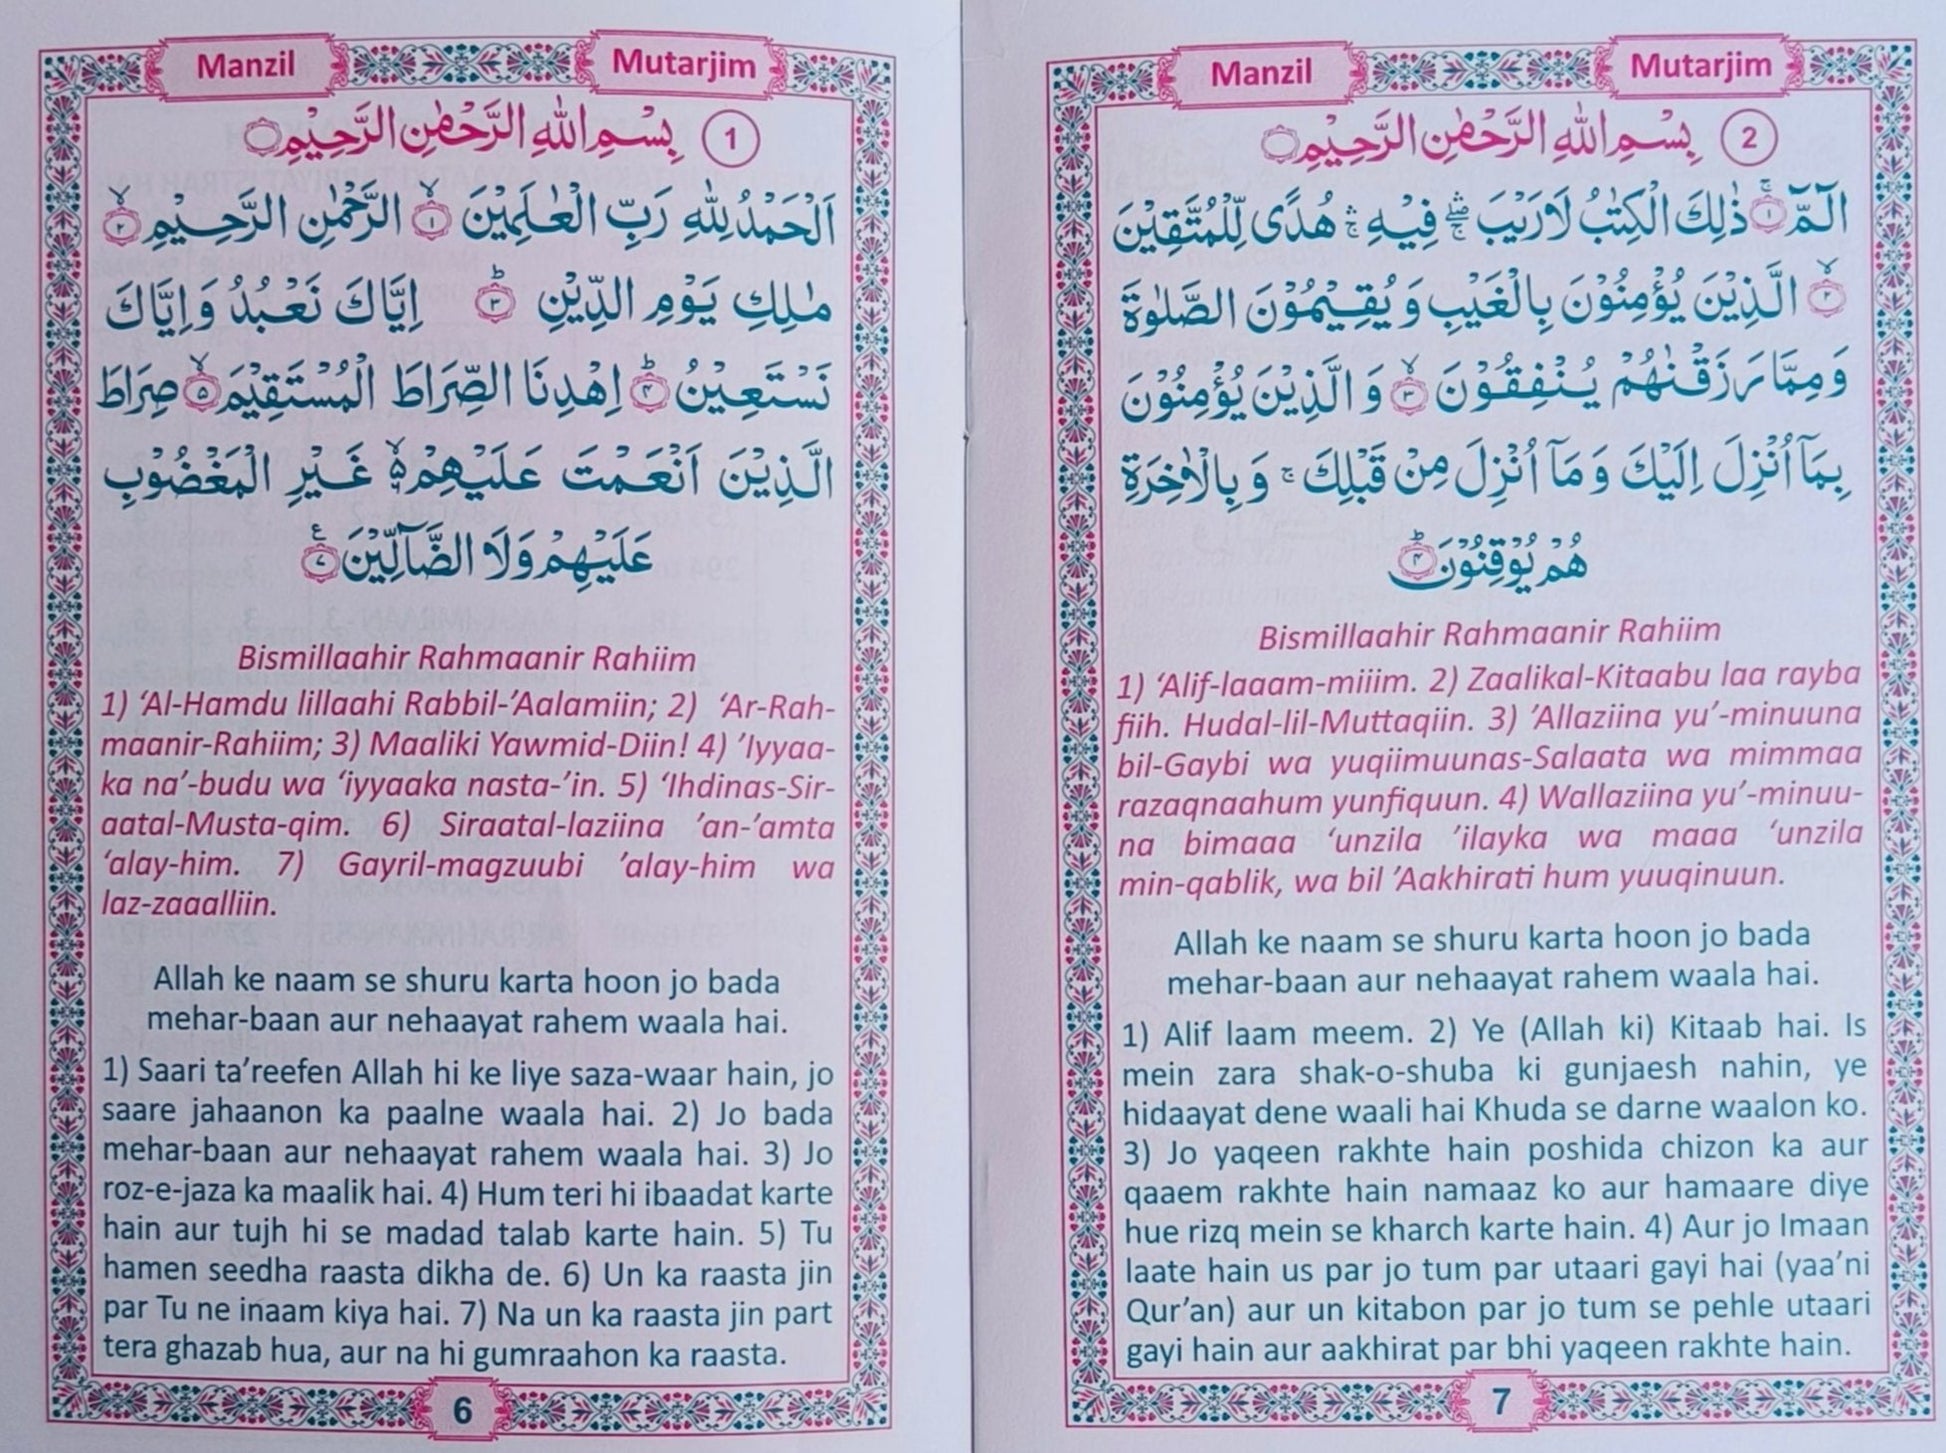 Manzil
Mutarjim
1 بِسْمِ اللهِ الرَّحْمٰنِ الرَّحِيْمِ
اَلْحَمْدُ لِلّٰهِ رَبِّ الْعٰلَمِيْنَ ۙ‏﴿۱﴾ الرَّحْمٰنِ الرَّحِيْمِ ۙ‏﴿۲﴾
مٰلِكِ يَوْمِ الدِّيْنِ ؕ‏﴿۳﴾ اِيَّاكَ نَعْبُدُ وَ اِيَّاكَ
نَسْتَعِيْنُ ؕ‏﴿۴﴾ اِهْدِنَا الصِّرَاطَ الْمُسْتَقِيْمَ ۙ‏﴿۵﴾ صِرَاطَ
الَّذِيْنَ اَنْعَمْتَ عَلَيْهِمْ ۙ۬ غَيْرِ الْمَغْضُوْبِ
عَلَيْهِمْ وَلَا الضَّآلِّيْنَ ‏﴿۷﴾ ع
Bismillaahir Rahmaanir Rahiim
1) ‘Al-Hamdu lillaahi Rabbil-’Aalamiin; 2) ‘Ar-Rah-
maanir-Rahiim; 3) Maaliki Yawmid-Diin! 4) ’Iyyaa-
ka na’-budu wa ‘iyyaaka nasta-’in. 5) ‘Ihdinas-Sir-
aatal-Musta-qim. 6) Siraatal-laziina ’an-’amta
‘alay-him. 7) Gayril-magzuubi ’alay-him wa
laz-zaaalliin.
Allah ke naam se shuru karta hoon jo bada
mehar-baan aur nehaayat rahem waala hai.
1) Saari ta’reefen Allah hi ke liye saza-waar hain, jo
saare jahaanon ka paalne waala hai. 2) Jo bada
mehar-baan aur nehaayat rahem waala hai. 3) Jo
roz-e-jaza ka maalik hai. 4) Hum teri hi ibaadat karte
hain aur tujh hi se madad talab karte hain. 5) Tu
hamen seedha raasta dikha de. 6) Un ka raasta jin
par Tu ne inaam kiya hai. 7) Na un ka raasta jin part
tera ghazab hua, aur na hi gumraahon ka raasta.
6
Manzil
Mutarjim
2 بِسْمِ اللهِ الرَّحْمٰنِ الرَّحِيْمِ
الٓمّٓ ۚ‏﴿۱﴾ ذٰلِكَ الْكِتٰبُ لَا رَيْبَ ۖۛۚ فِيْهِ ۛۚ هُدًى لِّلْمُتَّقِيْنَ
ۙ‏﴿۲﴾ الَّذِيْنَ يُؤْمِنُوْنَ بِالْغَيْبِ وَ يُقِيْمُوْنَ الصَّلٰوةَ
وَ مِمَّا رَزَقْنٰهُمْ يُنْفِقُوْنَ ۙ‏﴿۳﴾ وَ الَّذِيْنَ يُؤْمِنُوْنَ
بِمَاۤ اُنْزِلَ اِلَيْكَ وَ مَاۤ اُنْزِلَ مِنْ قَبْلِكَ ۚ وَ بِالْاٰخِرَةِ
هُمْ يُوْقِنُوْنَ ؕ‏﴿۴﴾
Bismillaahir Rahmaanir Rahiim
1) ‘Alif-laaam-miiim. 2) Zaalikal-Kitaabu laa rayba
fiih. Hudal-lil-Muttaqiin. 3) ’Allaziina yu’-minuuna
bil-Gaybi wa yuqiimuunas-Salaata wa mimmaa
razaqnaahum yunfiquun. 4) Wallaziina yu’-minuu-
na bimaaa ‘unzila ’ilayka wa maaa ‘unzila
min-qablik, wa bil ’Aakhirati hum yuuqinuun.
Allah ke naam se shuru karta hoon jo bada
mehar-baan aur nehaayat rahem waala hai.
1) Alif laam meem. 2) Ye (Allah ki) Kitaab hai. Is
mein zara shak-o-shuba ki gunjaesh nahin, ye
hidaayat dene waali hai Khuda se darne waalon ko.
3) Jo yaqeen rakhte hain poshida chizon ka aur
qaaem rakhte hain namaaz ko aur hamaare diye
hue rizq mein se kharch karte hain. 4) Aur jo Imaan
laate hain us par jo tum par utaari gayi hai (yaa’ni
Qur’an) aur un kitabon par jo tum se pehle utaari
gayi hain aur aakhirat par bhi yaqeen rakhte hain.
7